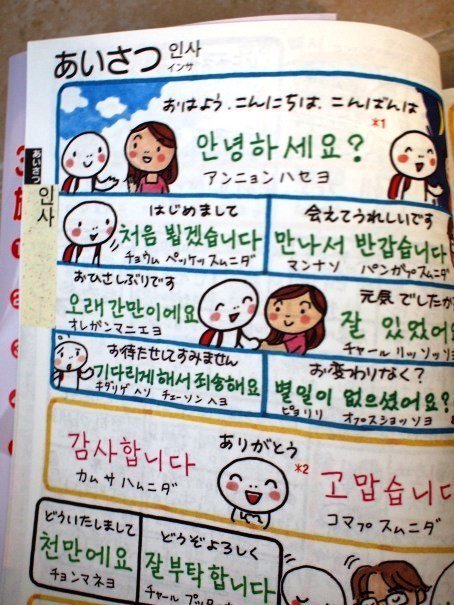 あいさつ 人사
インサ
おはよう．こんにちは．こんばんは
*1
안녕하세요?
アンニョンハセヨ
あいさつ
인사
はじめまして
처음 뵙겠습니다
チョウム ペッケッスムニダ
会えてうれしいです
만나서 반갑습니다
マンナソ パンガプスムニダ
おひさしぶりです
오래간만이에요
オレガンマニエヨ
元気でしたか
잘 있었어
チャール リッソッソ
お待たせしてすみません
기다리게 해서 죄송해요
キダリゲ ヘソ チェーソンヘヨ
お変わりなく？
별일이 없으셨어요?
ピョリリ オプスショッソヨ
감사합니다
カムサハムニダ
ありがとう
*2
고맙습니
コマプスムニダ
どういたしまして
천만에요
チョンマネヨ
どうぞよろしく
잘 부탁합니다
チャール